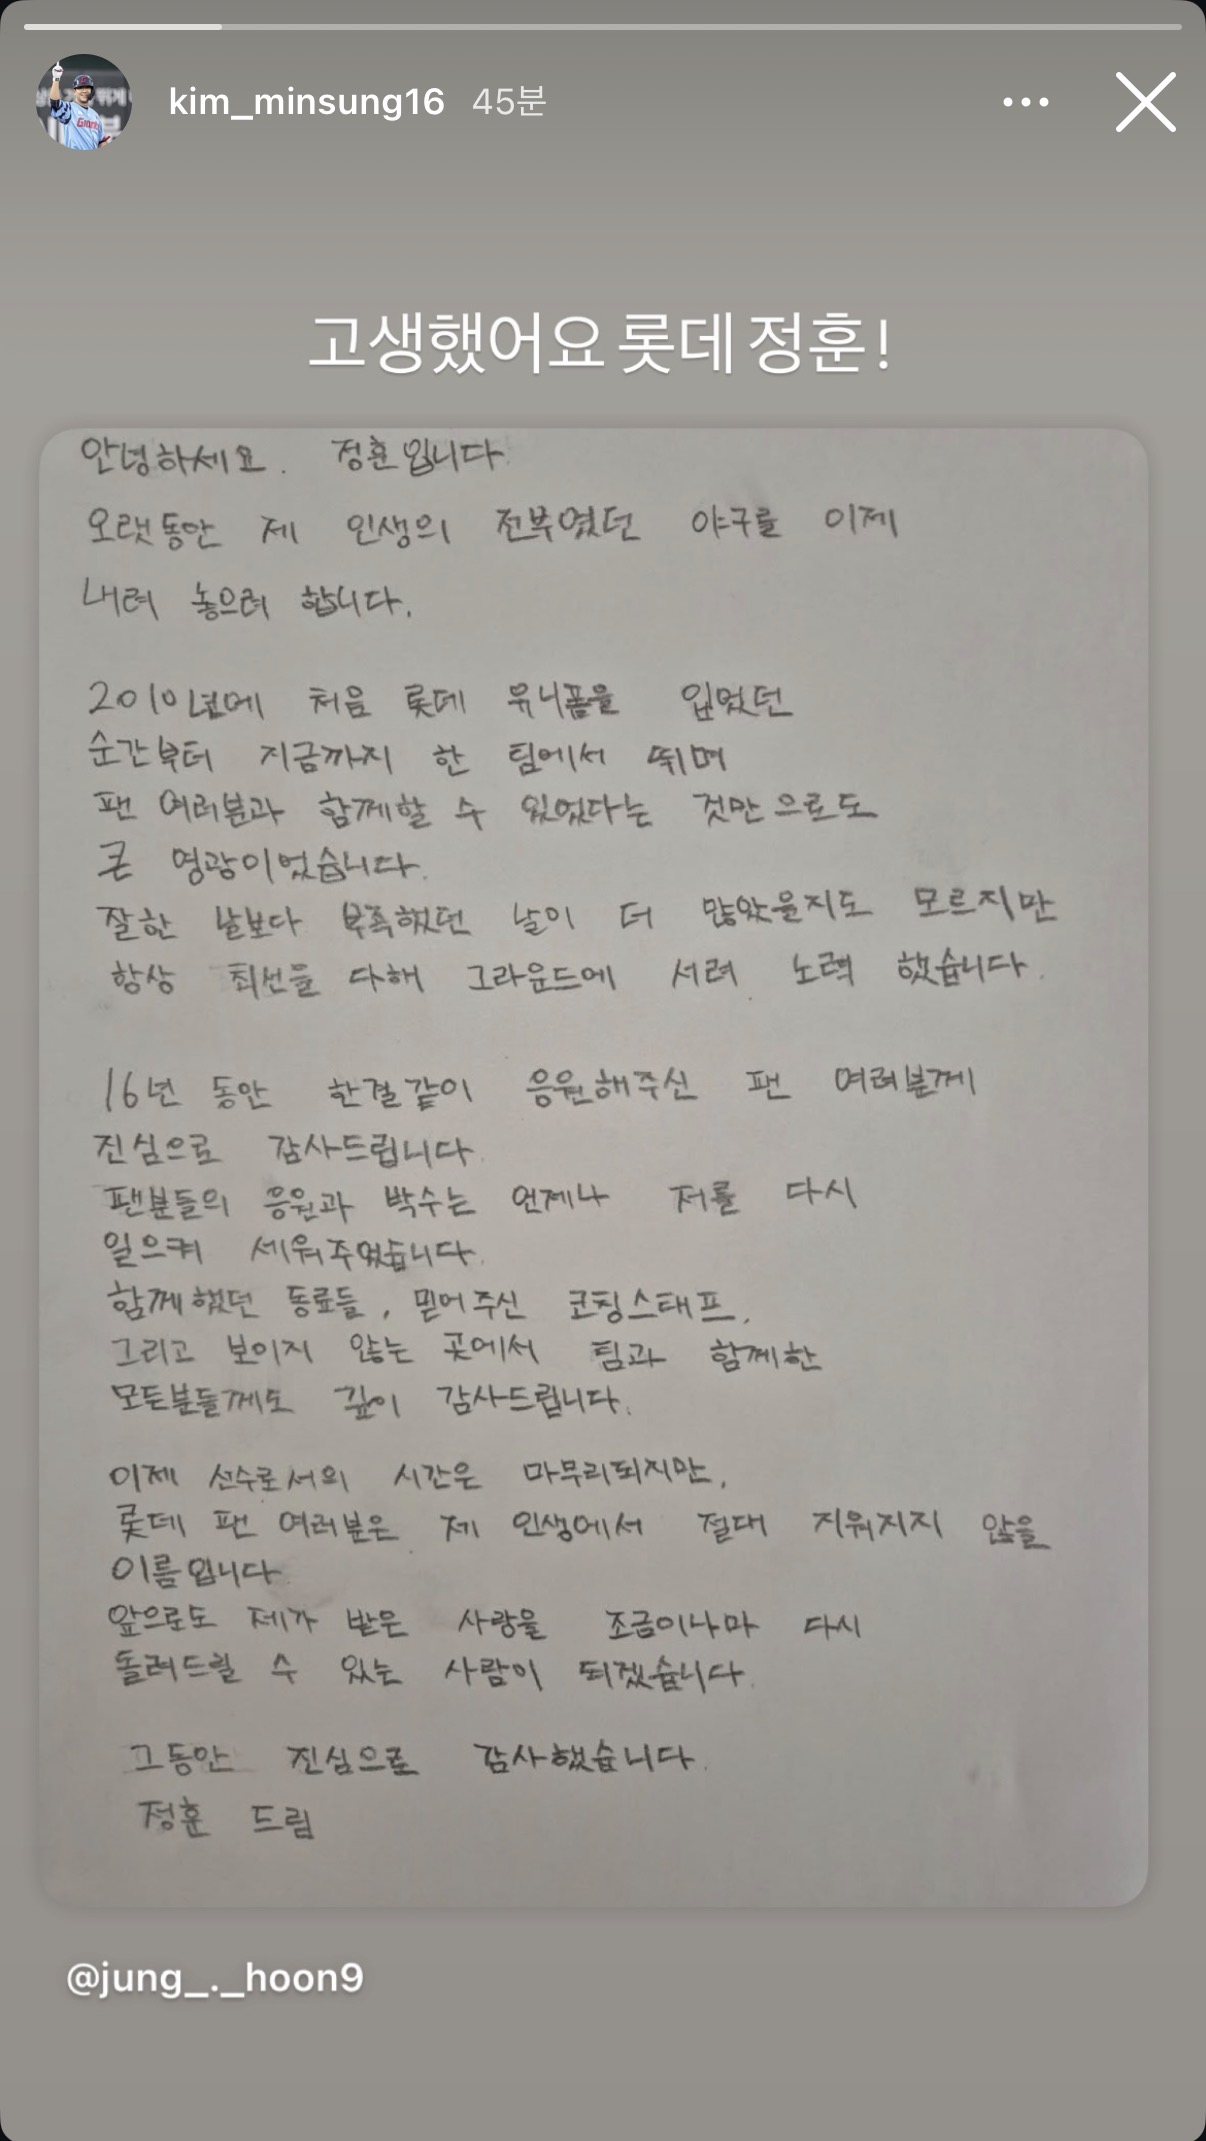 kim_minsung16 45분
고생했어요 롯데 정훈!
안녕하세요. 정훈입니다.
오랫동안 제 인생의 전부였던 야구를 이제
내려 놓으려 합니다.
2010년에 처음 롯데 유니폼을 입었던
순간부터 지금까지 한 팀에서 뛰며
팬 여러분과 함께할 수 있었다는 것만으로도
큰 영광이었습니다.
잘한 날보다 부족했던 날이 더 많았을지도 모르지만
항상 최선을 다해 그라운드에 서려 노력 했습니다.
16년 동안 한결같이 응원해주신 팬 여러분께
진심으로 감사드립니다.
팬분들의 응원과 박수는 언제나 저를 다시
일으켜 세워주었습니다.
함께했던 동료들, 믿어주신 코칭스태프,
그리고 보이지 않는 곳에서 팀과 함께한
모든분들께도 깊이 감사드립니다.
이제 선수로서의 시간은 마무리되지만,
롯데 팬 여러분은 제 인생에서 절대 지워지지 않을
이름입니다
앞으로도 제가 받은 사랑을 조금이나마 다시
돌려드릴 수 있는 사람이 되겠습니다.
그동안 진심으로 감사했습니다.
정훈 드림
@jung_._hoon9